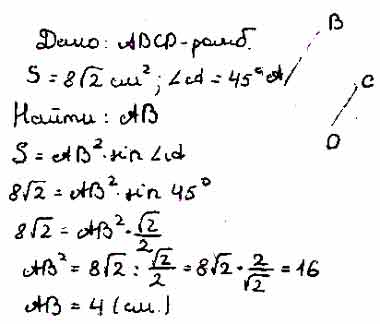 Дано: ABCD - ромб.
S = 8√2 см²; ∠A = 45°
Найти: AB
S = AB² · sin ∠A
8√2 = AB² · sin 45°
8√2 = AB² · √2/2
AB² = 8√2 : √2/2 = 8√2 · 2/√2 = 16
AB = 4 (см.)
B
A
C
D